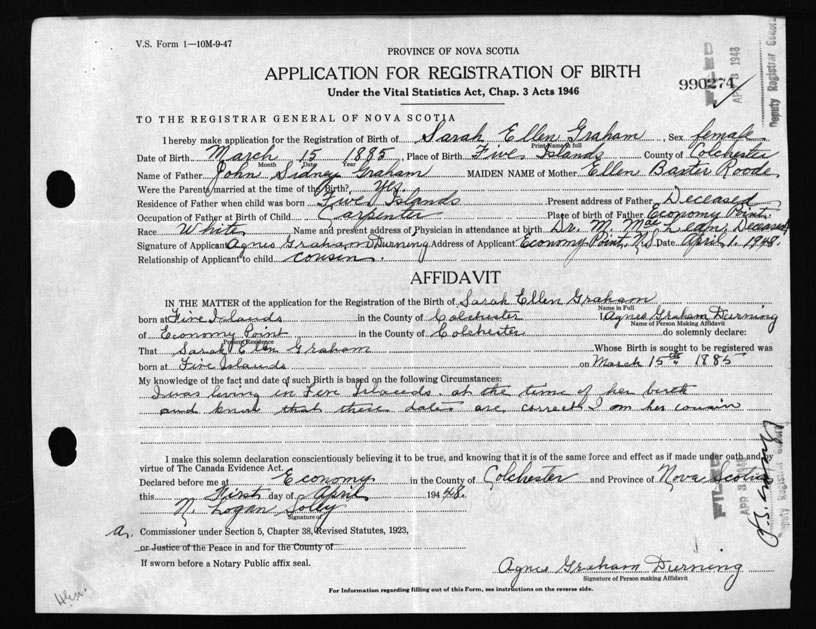 V.S. Form 1—10M-9-47
PROVINCE OF NOVA SCOTIA
APPLICATION FOR REGISTRATION OF BIRTH
Under the Vital Statistics Act, Chap. 3 Acts 1946
990274
FILED
APR 3 1948
Deputy Registrar General
TO THE REGISTRAR GENERAL OF NOVA SCOTIA
I hereby make application for the Registration of Birth of Sarah Ellen Graham, Sex female
Print Name in full
Date of Birth March 15 1885 Place of Birth Five Islands County of Colchester
Month Date Year
Name of Father John Sidney Graham MAIDEN NAME of Mother Ellen Baxter Roode
Were the Parents married at the time of the Birth? Yes
Residence of Father when child was born Five Islands Present address of Father Deceased
Occupation of Father at Birth of Child Carpenter Place of birth of Father Economy Point
Race White Name and present address of Physician in attendance at birth Dr. M. MacLean, Deceased
Signature of Applicant Agnes Graham Durning Address of Applicant Economy Point, N.S. Date April 1. 1948.
Relationship of Applicant to child cousin.
AFFIDAVIT
IN THE MATTER of the application for the Registration of the Birth of Sarah Ellen Graham
Name in Full
born at Five Islands in the County of Colchester I Agnes Graham Durning
Name of Person Making Affidavit
of Economy Point in the County of Colchester do solemnly declare:
Present Residence
That Sarah Ellen Graham Whose Birth is sought to be registered was
born at Five Islands on March 15th 1885
My knowledge of the fact and date of such Birth is based on the following Circumstances:
I was living in Five Islands. at the time of her birth
and know that these dates are correct. I am her cousin
I make this solemn declaration conscientiously believing it to be true, and knowing that it is of the same force and effect as if made under oath and by
virtue of The Canada Evidence Act.
Declared before me at Economy in the County of Colchester and Province of Nova Scotia
this First day of April 1948.
N. Logan Soley
Signature of
A. Commissioner under Section 5, Chapter 38, Revised Statutes, 1923,
or Justice of the Peace in and for the County of
If sworn before a Notary Public affix seal.
Agnes Graham Durning
Signature of Person making Affidavit
For Information regarding filling out of this Form, see instructions on the reverse side.
FILED
APR 3 1948
Deputy Registrar General